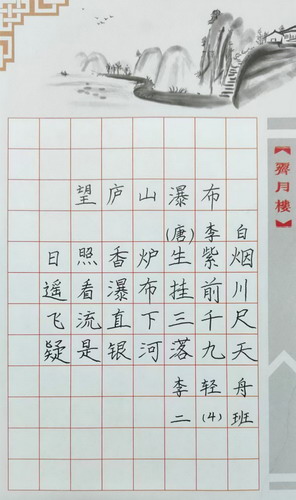 望庐山瀑布
(唐)李白
日照香炉生紫烟
遥看瀑布挂前川
飞流直下三千尺
疑是银河落九天
李轻舟
二(4)班
【霁月楼】